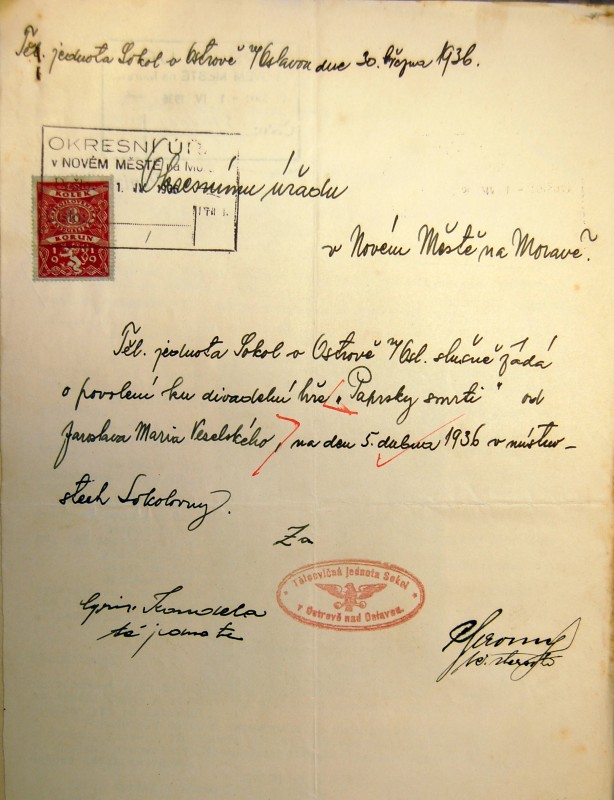 Těl. jednota Sokol v Ostrově n/Oslavou dne 30. března 1936.
OKRESNÍ ÚŘ
v NOVÉM MĚSTĚ na Mor
1. IV. 1936
Okresnímu úřadu
KOLEK
KORUN
1919
v Novém Městě na Moravě.
Těl. jednota Sokol v Ostrově n/Osl. slušně žádá
o povolení ku divadelní hře „Paprsky smrti" od
Jaroslava Maria Veselského, na den 5. dubna 1936 v místno-
stech Sokolovny.
Za
Tělocvičná jednota Sokol
v Ostrově nad Oslavou.